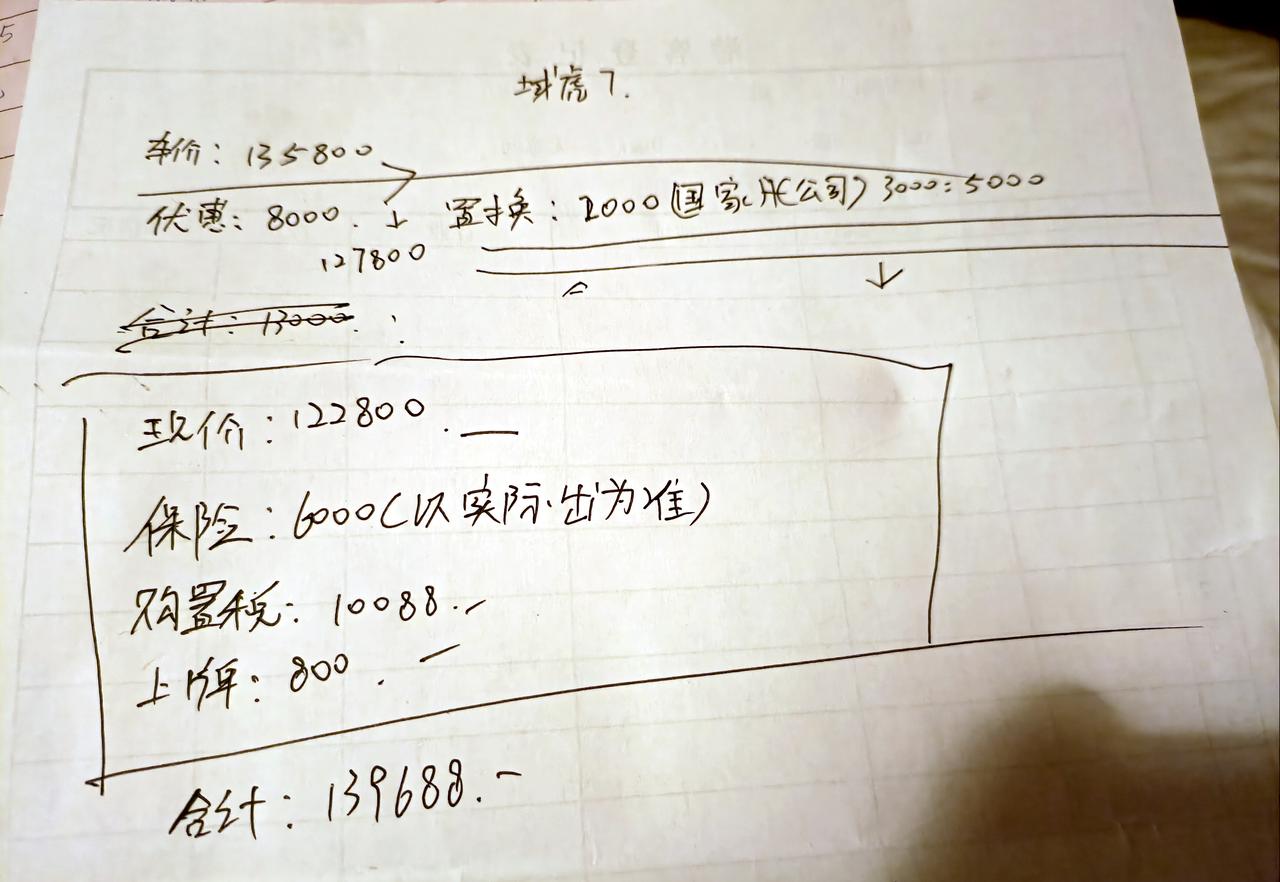 域虎7.
车价：135800
优惠：8000. ↓ 置换：2000国家,(公司)3000：5000
127800
合计：13000.
现价：122800.
保险：6000(以实际出为准)
购置税：10088.
上牌：800.
合计：139688.